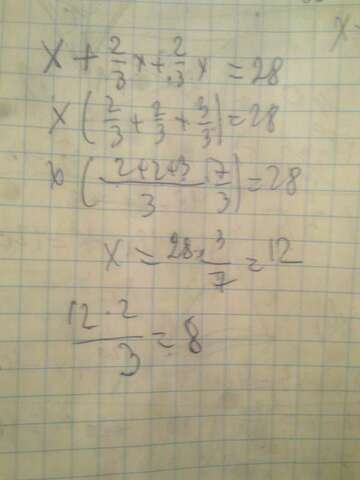 x + 2/3 x + 2/3 x = 28
x (2/3 + 2/3 + 3/3) = 28
x ((2+2+3)/3 7/3) = 28
x = 28 · 3/7 = 12
(12 · 2)/3 = 8